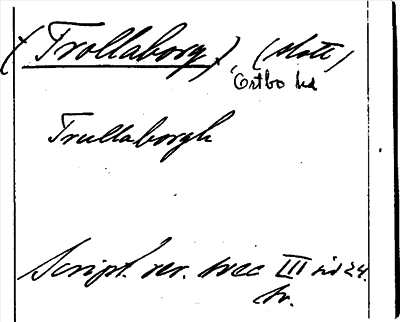 (Trollaborg), (slott)
Örtbo hd
Trullaborgh
Script. rer. svec III sid 24.